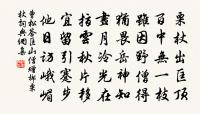 栗杖出匡頂
百中無一枝
雖因野僧得
猶畏岳神知
畫月冷光在
指雲秋片移
宜留引蹇步
他日訪峨嵋
曹松答匡山僧贈榔栗
杖詞典網集